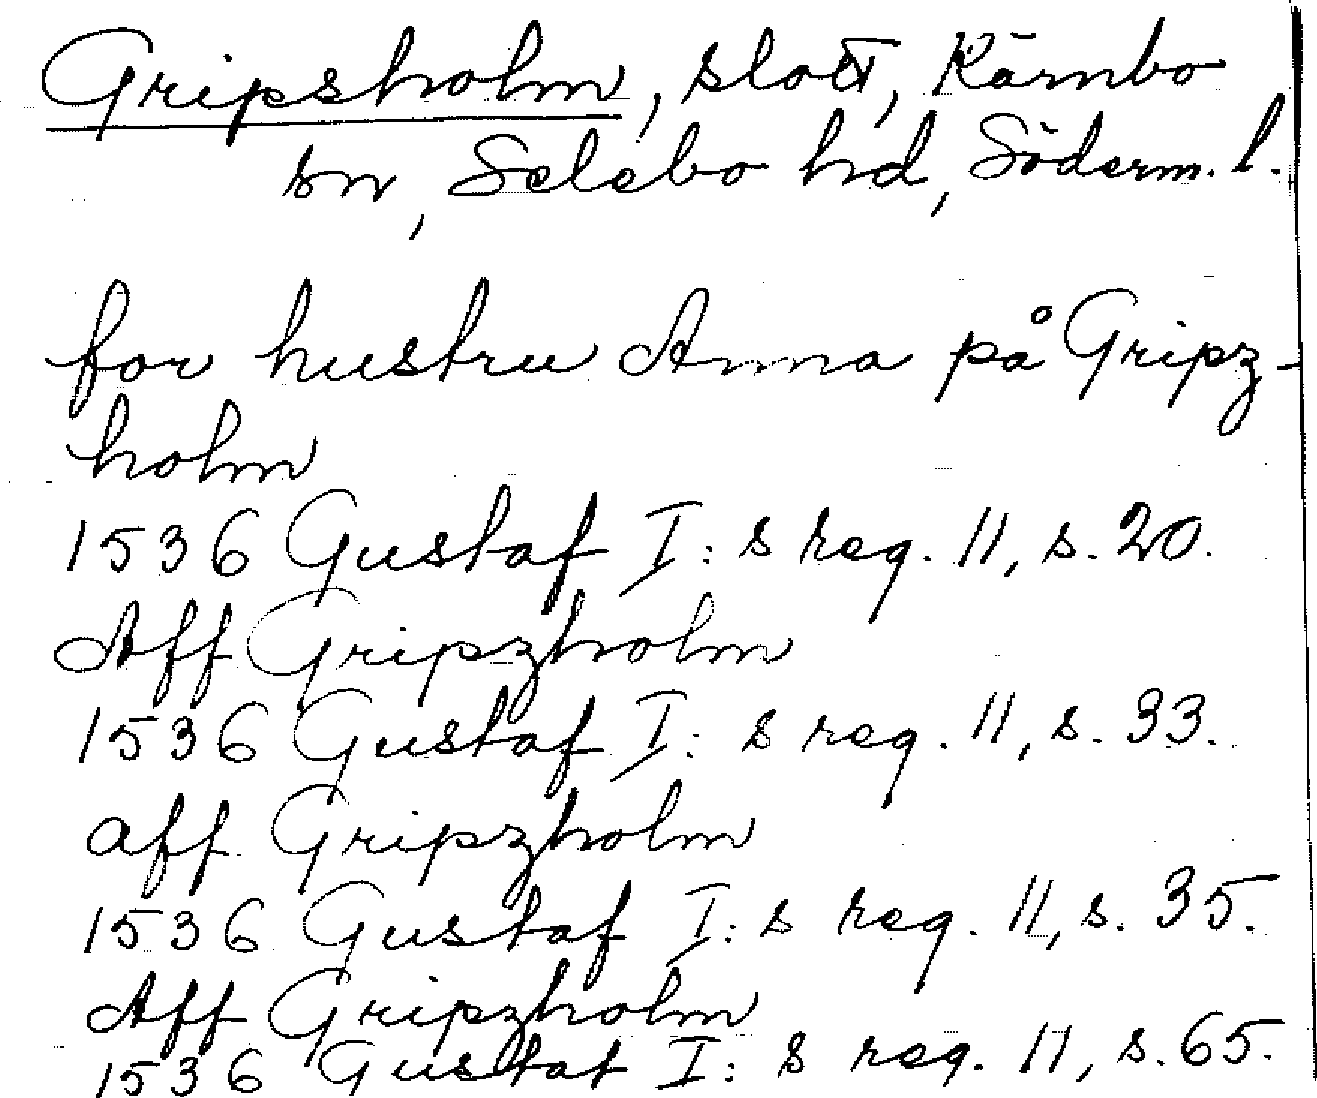 Gripsholm, slott, Kärnbo
sn, Selebo hd, Söderm. l.
for hustru Anna på Gripz-
holm
1536 Gustaf I:s reg. 11, s. 20.
Aff Gripzholm
1536 Gustaf I:s reg. 11, s. 33.
aff Gripzholm
1536 Gustaf I:s reg. 11, s. 35.
Aff Gripzholm
1536 Gustaf I:s reg. 11, s. 65.